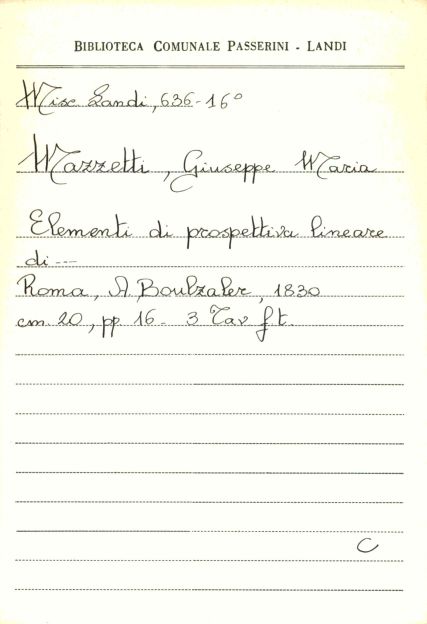 BIBLIOTECA COMUNALE PASSERINI - LANDI
Misc. Landi, 636-16°
Mazzetti, Giuseppe Maria
Elementi di prospettiva lineare
di ---
Roma, A. Boulzaler, 1830
cm. 20, pp 16 - 3 Tav f.t.
C